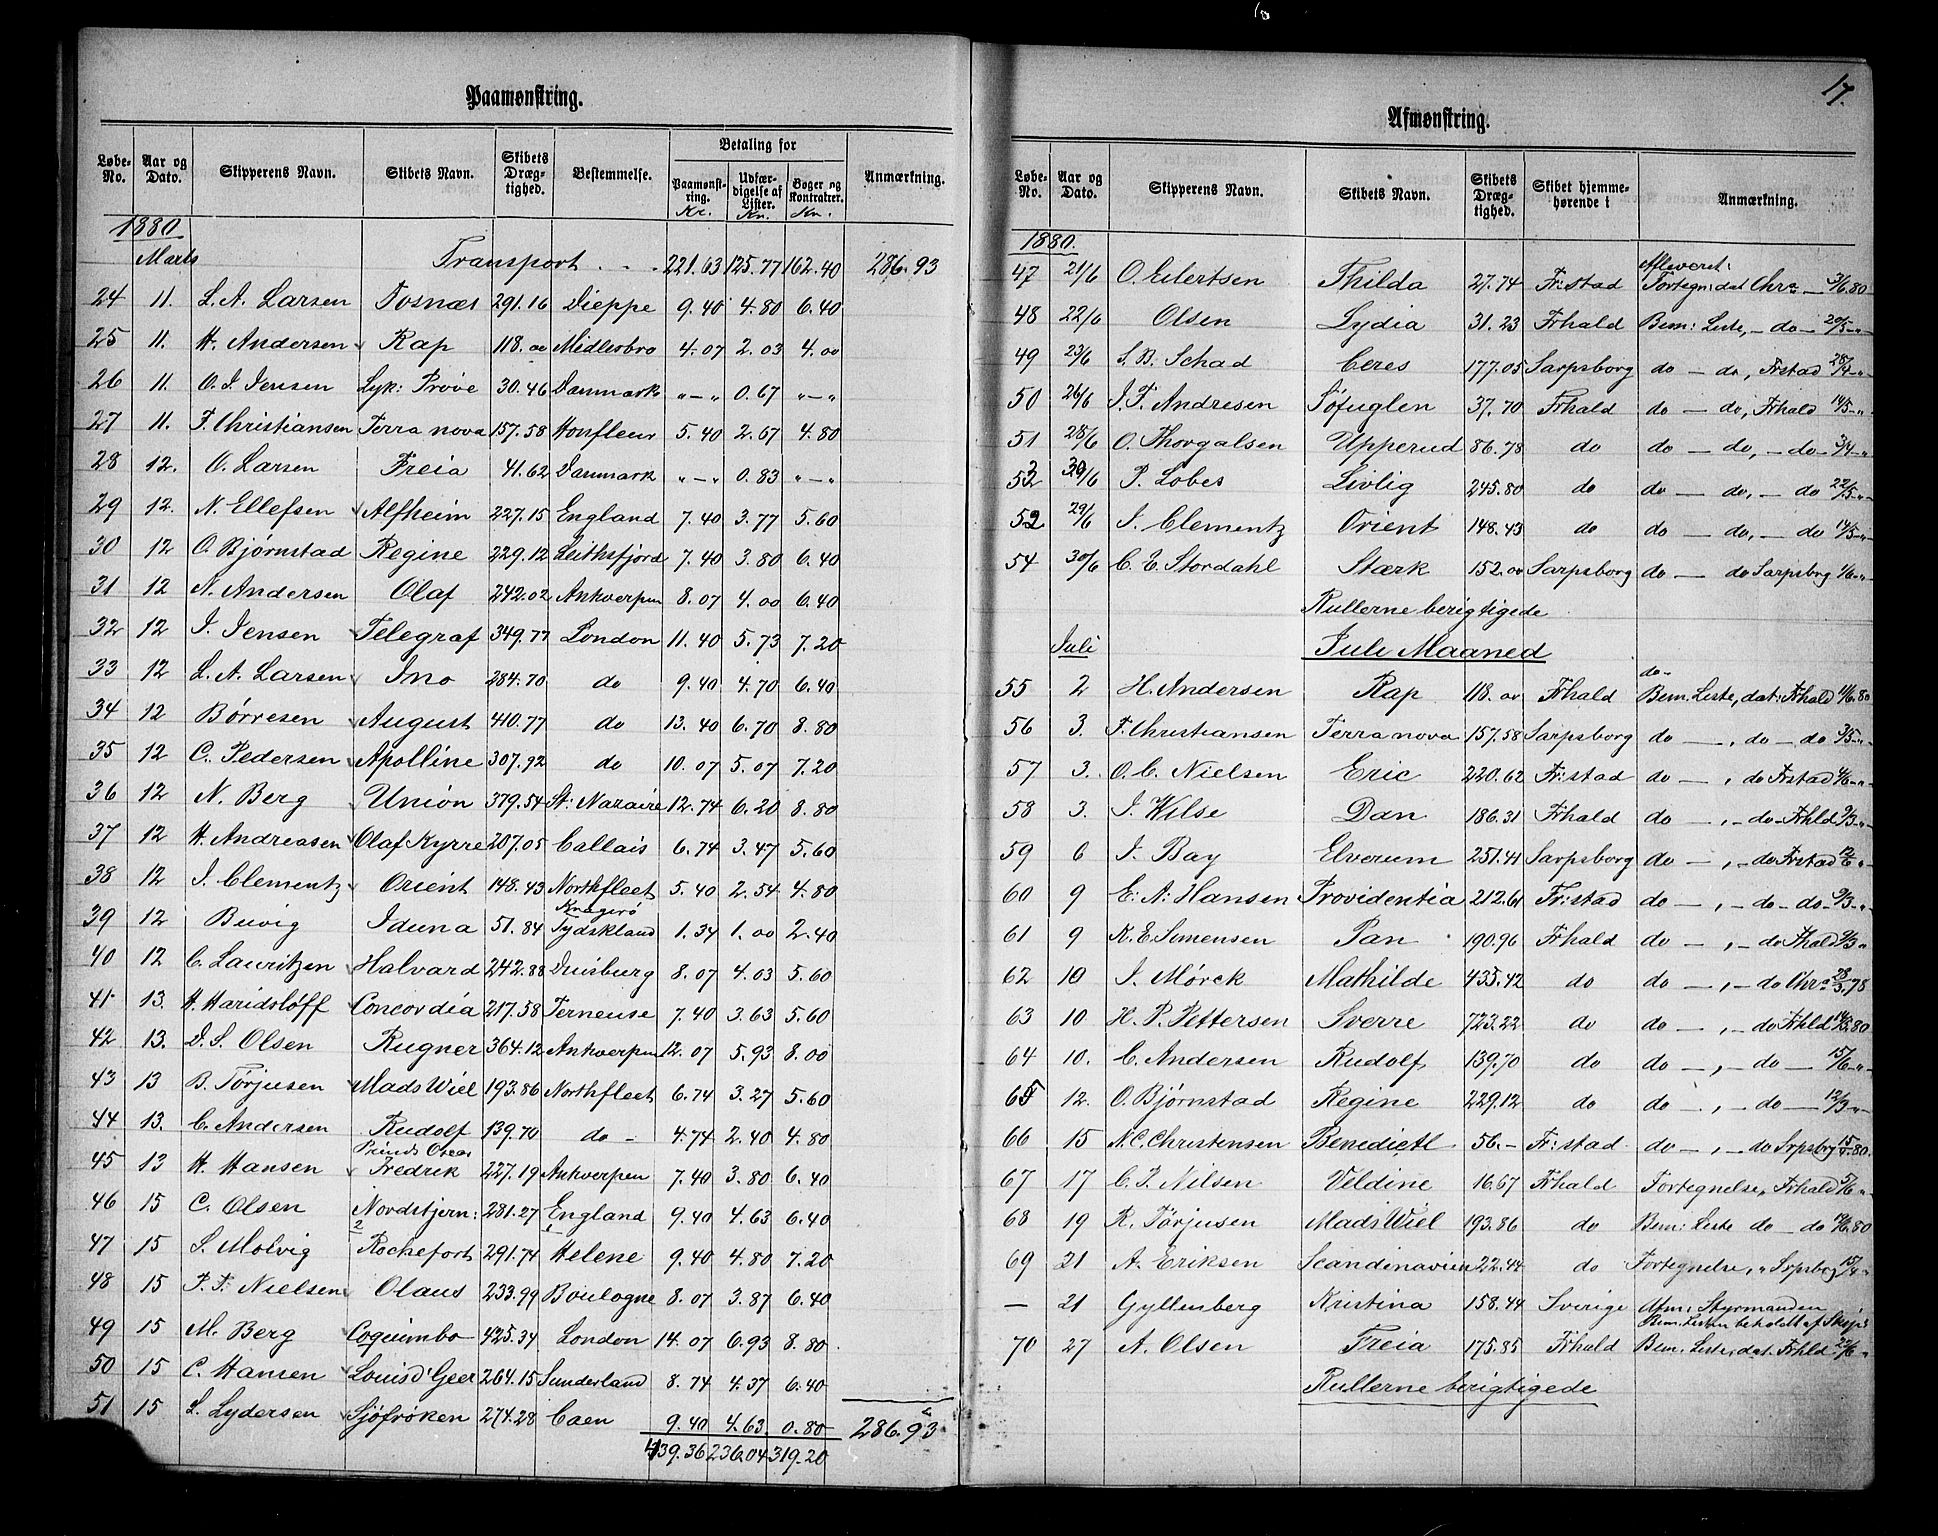 Paamønstring.
Løbe-No. Aar og Dato. Skipperens Navn. Skibets Navn. Skibets Dræg-tighed. Bestemmelse. Betaling for Paamønst-ring. Udfær-digelse af Lister. Bøger og Kontrakter. Anmærkning.
Kr. Kr. Kr.
1880
Marts Transport . . . 221.63 125.77 162.40 286.93
24 11. L. A. Larsen Tosnæs 291.16 Dieppe 9.40 4.80 6.40
25 11. H. Andersen Rap 118.00 Midlesbro 4.07 2.03 4.00
26 11. O. I. Jensen Lyk: Prøve 30.46 Danmark "—" 0.67 "—"
27 11. F. Christiansen Terra nova 157.58 Honfleur 5.40 2.67 4.80
28 12. O. Larsen Freia 41.62 Danmark "—" 0.83 "—"
29 12. N. Ellefsen Alfheim 227.15 England 7.40 3.77 5.60
30 12 O. Bjørnstad Regine 229.12 Leithsfjord 7.40 3.80 6.40
31 12 N. Andersen Olaf 242.02 Antverpen 8.07 4.00 6.40
32 12 I. Jensen Telegraf 349.77 London 11.40 5.73 7.20
33 12 L. A. Larsen Ino 284.70 do 9.40 4.70 6.40
34 12 Børresen August 410.77 do 13.40 6.70 8.80
35 12 C. Pedersen Apolline 307.92 do 10.07 5.07 7.20
36 12 N. Berg Union 379.54 St: Nazaire 12.74 6.20 8.80
37 12 H. Andreasen Olaf Kyrre 207.05 Callais 6.74 3.47 5.60
38 12 I. Clementz Orient 148.43 Northfleet 5.40 2.54 4.80
39 12 Buvig Iduna 51.84 Kragerø Tydskland 1.34 1.00 2.40
40 12 C. Lauritzen Halvard 242.88 Duisburg 8.07 4.03 5.60
41 13. H. Haridsløff Concordia 217.58 Terneuse 7.40 3.63 5.60
42 13. D. S. Olsen Rugner 364.12 Antverpen 12.07 5.93 8.00
43 13 B. Tørjusen Mads Wiel 193.86 Northfleet 6.74 3.27 5.60
44 13. C. Andersen Rudolf 139.70 do - 4.74 2.40 4.80
45 13 H. Hansen Prinds Oscar Fredrik 227.19 Antverpen 7.40 3.80 6.40
46 15 C. Olsen Nordstjern: 281.27 England 9.40 4.63 6.40
2 1
47 15 S. Molvig Rochefort 291.74 Helene 9.40 4.80 7.20
48 15 P. P. Nielsen Olaus 233.99 Boulogne 8.07 3.87 6.40
49 15 M. Berg Coquimbo 425.34 London 14.07 6.93 8.80
50 15 C. Hansen Louis d'Geer 264.15 Sunderland 8.74 4.37 6.40
51 15 L. Lydersen Sjøfrøken 274.28 Caen 9.40 4.63 0.80 286.93
439.36 236.04 319.20
17.
Afmønstring.
Løbe-No. Aar og Dato. Skipperens Navn. Skibets Navn. Skibets Dræg-tighed. Skibet hjemme-hørende i Anmærkning.
1880.
Afleveret:
47 21/6 O. Eilertsen Thilda 27.74 Fr:stad Fortegn: dat Chra — 3/6.80
48 22/6 Olsen Lydia 31.23 Frhald Bem: Liste, - do - 20/5 - "
49 23/6 S. B. Schad Ceres 177.05 Sarpsborg do — do, Frstad 28/4 - "
50 26/6 I. F. Andresen Søfuglen 37.70 Frhald do — do, Frhald 14/5 - "
51 28/6 O. Thorgalsen Upperud 86.78 do do — do, — do - 3/4 - "
53 30/6 P. Lobes Livlig 245.80 do do — do, — do 22/5 - "
52 29/6 I. Clementz Orient 148.43 do do — do, — do 14/5 - "
54 30/6 C. E. Stordahl Stærk 152.00 Sarpsborg do — do Sarpsbrg 1/6 - "
Rullerne berigtigede
Juli Juli Maaned
do-
55 2 H. Andersen Rap 118.00 Frhald Bem. Liste, dat: Frhald 4/6.80
56 3. F. Christiansen Terra nova 157.58 Sarpsborg do —, do — do 3/5 - "
57 3. O. C. Nielsen Eric 220.62 Fr:stad do —, do Frstad 4/6 - "
58 3. I. Wilse Dan 186.31 Frhald do —, - do - Frhld 9/3 - "
59 6 I. Bay Elverum 251.41 Sarpsborg do —, - do Frstad 12/6 "
60 9 E. A. Hansen Providentia 212.61 Fr:stad do —, - do - do - 9/3 - "
61 9 K. E. Simensen Pan 190.96 Frhald do —, - do Fhald 9/3 "
62 10 I. Mørck Mathilde 435.42 do do —, - do Chra 28/3.78
63 10 H. P. Pettersen Sverre 723.22 do do —, - do Frhld 14/5.80
64 10. C. Andersen Rudolf 139.70 do do —, - do — 15/6 - "
65 12. O. Bjørnstad Regine 229.12 do do —, - do — 12/3 - "
66 15 N. C. Christensen Benedictl 56.- Fr:stad do —, - do Srpsbrg 15/5.80
67 17 C. P. Nilsen Veldine 16.67 Frhald Fortegnelse, Frhald 5/6 "
68 19 R. Tørjusen Mads Wiel 193.86 do Bem: Liste do - do 19/6.80
69 21 A. Eriksen Scandinavien 22.44 do Fortegnelse, " Srpsbrg 15/4 "
— 21 Gyllenberg Kristina 158.44 Sverige Afm: Styrmanden
Bem. Listen beholdt af Skip:
70 27 A. Olsen Freia 175.85 Frhald Bem. Liste, dat. Frhld 22/6 "
Rullerne berigtigede